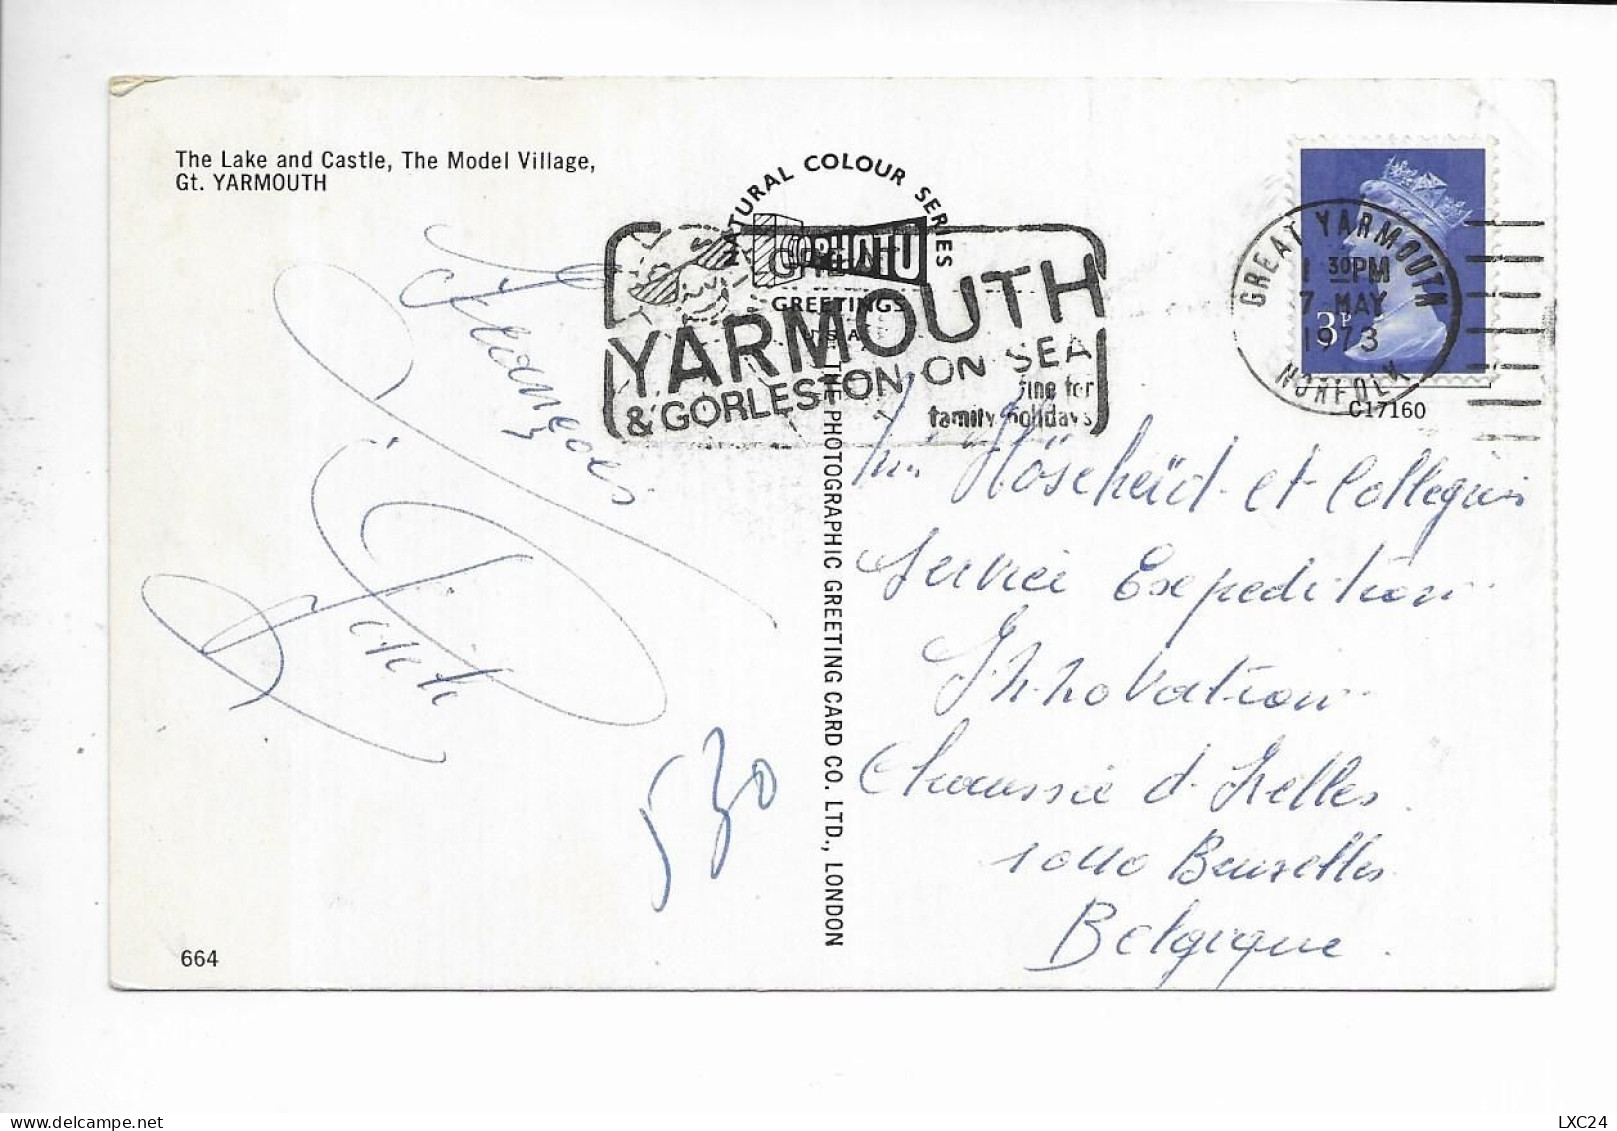 The Lake and Castle, The Model Village,
Gt. YARMOUTH
NATURAL COLOUR SERIES
GREETINGS
GREAT
YARMOUTH
& GORLESTON ON SEA
fine for
family holidays
GREAT YARMOUTH
30PM
7 MAY
1973
NORFOLK
3P
C17160
THE PHOTOGRAPHIC GREETING CARD CO. LTD., LONDON
530
Höscheïd et Collegues
Service Expedition
Innovation
Chaussée d'Ixelles
1040 Bruxelles
Belgique
664
LXC24